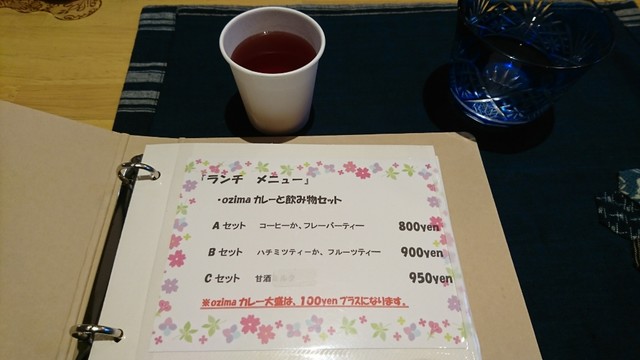 「ランチ　メニュー」
・ozima カレーと飲み物セット
A セット　コーヒーか、フレーバーティー　800yen
B セット　ハチミツティーか、フルーツティー　900yen
C セット　甘酒　950yen
※ozima カレー大盛は、100yen プラスになります。